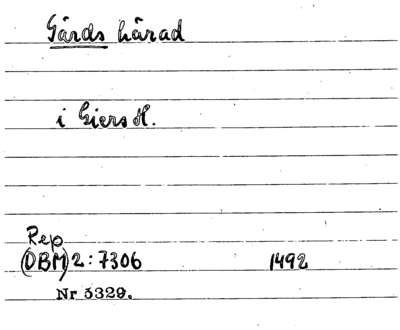 Gärds härad
i Giers H.
Rep
(DBM) 2:7306 1492
Nr 5329.